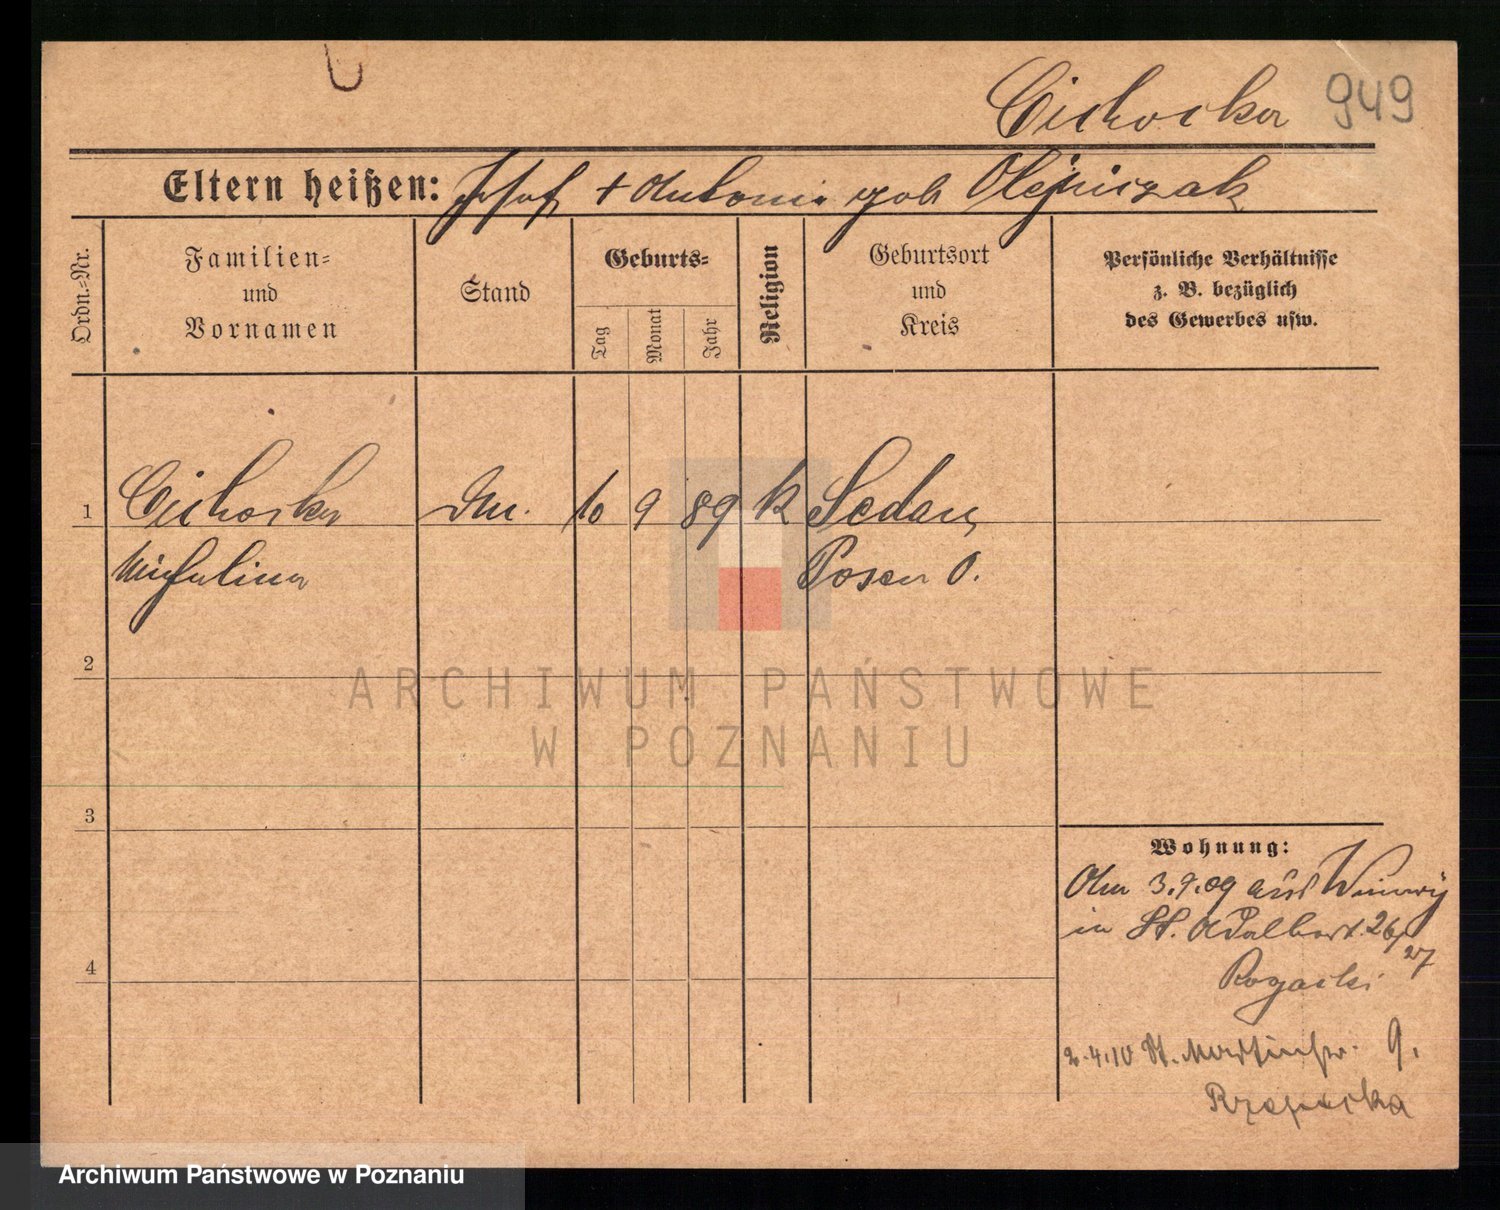 Cichocka 949
Eltern heißen: Josef + Antonie geb Olejniczak
Ordn.-Nr.
Familien-
und
Vornamen
Stand
Geburts-
Tag
Monat
Jahr
Religion
Geburtsort
und
Kreis
Persönliche Verhältnisse
z. B. bezüglich
des Gewerbes usw.
1 Cichocka 10 9 89 k Sedan
Michalina Posen O.
2
3
4
Wohnung:
3.9.09 aus
in St. Adalbert. 26/27
Rogacki
2.4.10 St. Martinstr. 9.
Rzepecka
ARCHIWUM PAŃSTWOWE
W POZNANIU
Archiwum Państwowe w Poznaniu